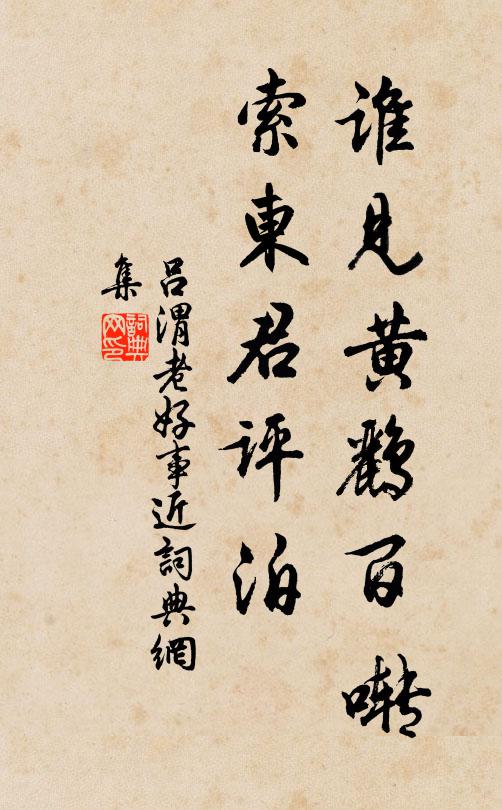 誰見黃鸝百囀
索東君評泊
呂渭老好事近詞典網
集
詞典
网印